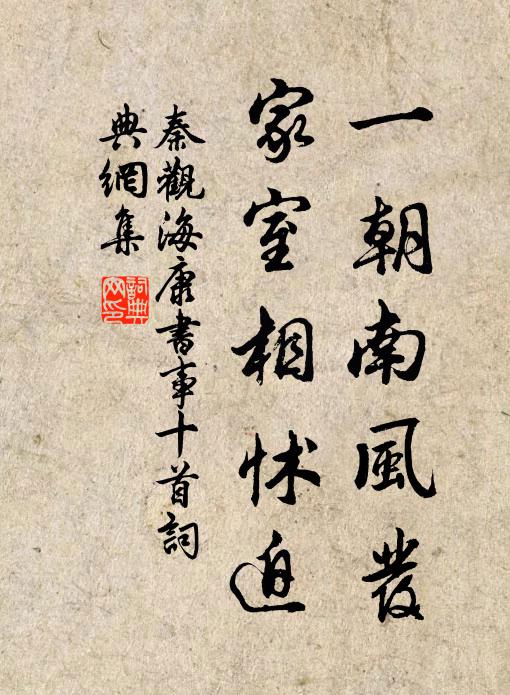 一朝南風發
家室相怵迫
秦觀海康書事十首詞
典網集
詞典
网印